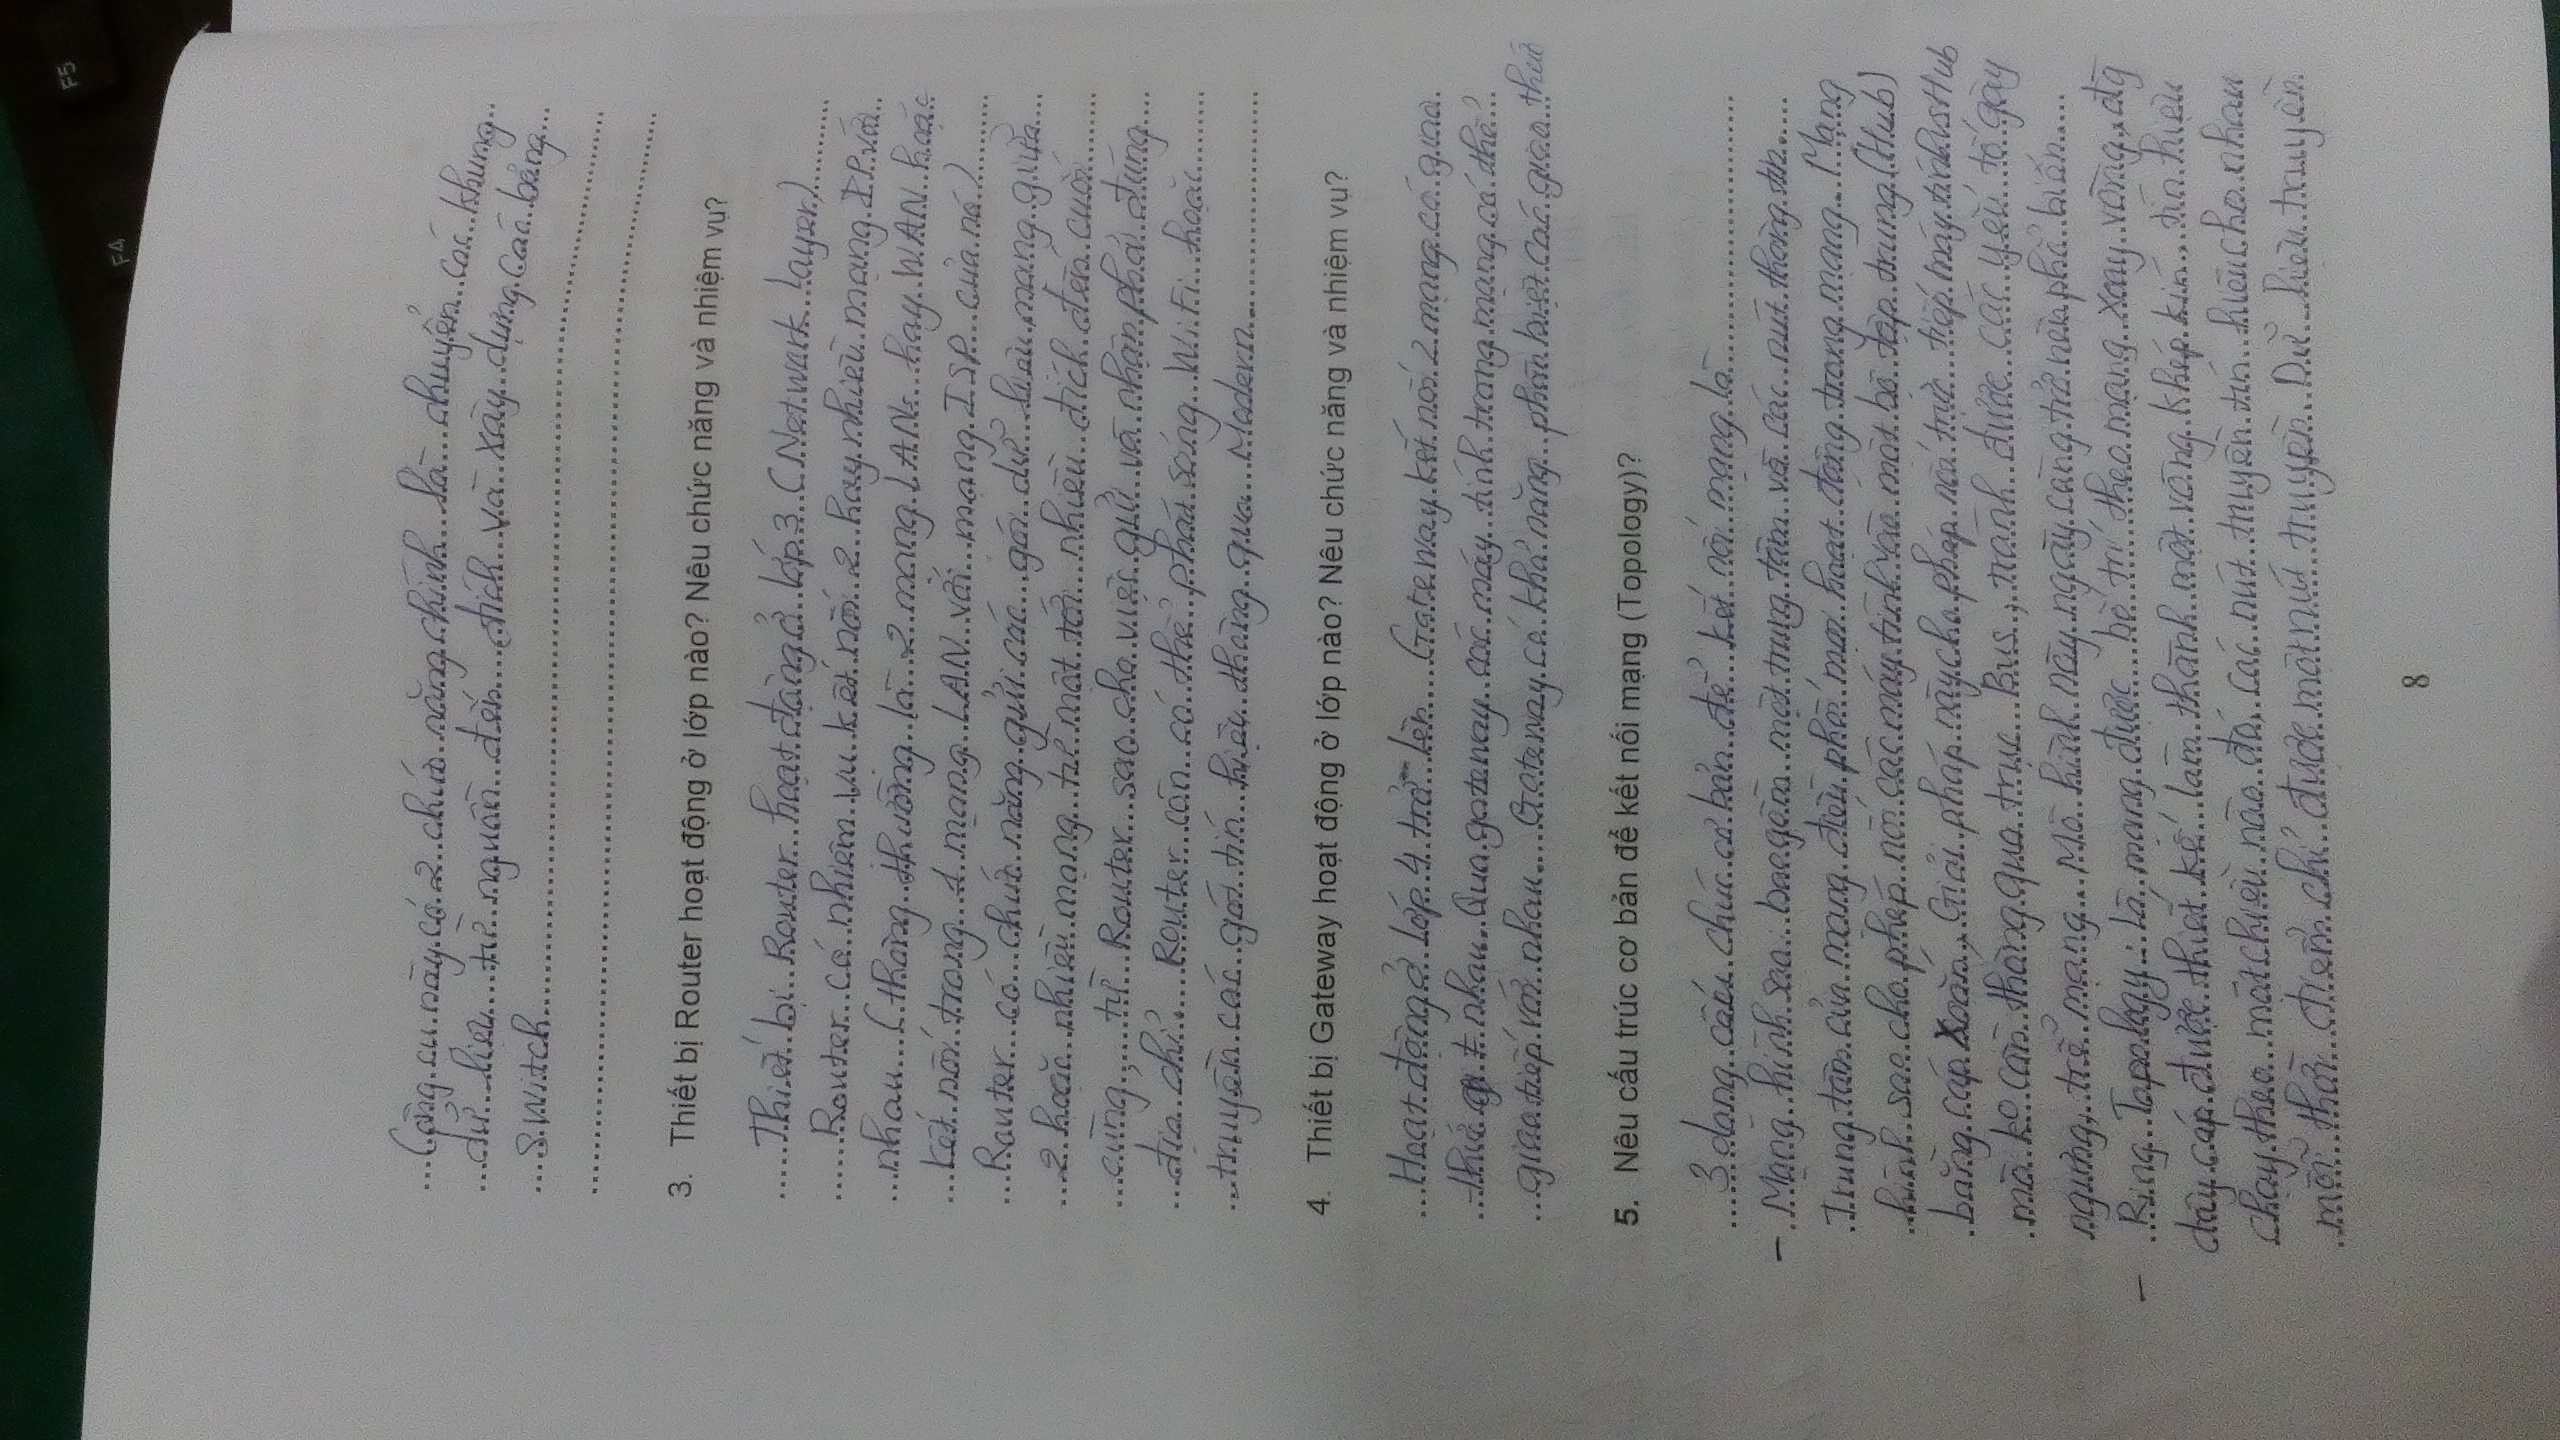 F5
F4
Công cụ này có 2 chức năng chính là chuyển các khung
dữ liệu từ nguồn đến đích và xây dựng các bảng
Switch
3. Thiết bị Router hoạt động ở lớp nào? Nêu chức năng và nhiệm vụ?
Thiết bị Router hoạt động ở lớp 3 (Network layer)
Router có nhiệm vụ kết nối 2 hay nhiều mạng IP với
nhau (thông thường là 2 mạng LANs hay WAN hoặc
kết nối trong 1 mạng LAN với mạng ISP của nó)
Router có chức năng gửi các gói dữ liệu mạng giữa
2 hoặc nhiều mạng từ một tới nhiều đích đến cuối
cùng, từ Router sao cho việc gửi và nhận phải đúng
địa chỉ. Router còn có thể phát sóng WiFi hoặc
truyền các gói tín hiệu thông qua Modern.
4. Thiết bị Gateway hoạt động ở lớp nào? Nêu chức năng và nhiệm vụ?
Hoạt động ở lớp 4 trở lên. Gateway kết nối 2 mạng có giao
thức ≠ nhau. Qua gateway các máy tính trong mạng có thể
giao tiếp với nhau. Gateway có khả năng phân biệt các giao thức
5. Nêu cấu trúc cơ bản để kết nối mạng (Topology)?
3 dạng cấu chúc cơ bản để kết nối mạng là
- Mạng hình sao: bao gồm một trung tâm và các nút thông tin.
Trung tâm của mạng điều phối mọi hoạt động trong mạng. Mạng
hình sao cho phép nối các máy tính vào một bộ tập trung (Hub)
bằng cáp xoắn, Giải pháp này cho phép nối trực tiếp máy tính vs Hub
mà ko cần thông qua trục Bus, tránh được các yếu tố gây
ngưng, trễ mạng. Mô hình này ngày càng trở nên phổ biến
- Ring Topology: Là mạng được bố trí theo mạng xoay vòng, đg
dây cáp được thiết kế làm thành một vòng khép kín, tín hiệu
chạy theo một chiều nào đó, các nút truyền tín hiệu cho nhau
mỗi thời điểm chỉ được một nút truyền Dữ liệu truyền
8